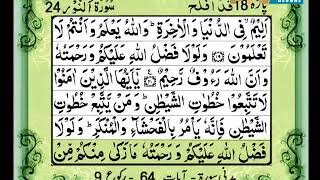 پارہ 18 قد افلح
سُوْرَةُ النُّوْر 24
اَلِیْمٌ فِی الدُّنْیَا وَالْاٰخِرَةِ ؕ وَاللّٰهُ یَعْلَمُ وَاَنْتُمْ لَا
تَعْلَمُوْنَ ۝ وَلَوْلَا فَضْلُ اللّٰهِ عَلَیْكُمْ وَرَحْمَتُهٗ
وَاَنَّ اللّٰهَ رَءُوْفٌ رَّحِیْمٌ ۝ یٰۤاَیُّهَا الَّذِیْنَ اٰمَنُوْا
لَا تَتَّبِعُوْا خُطُوٰتِ الشَّیْطٰنِ ؕ وَمَنْ یَّتَّبِعْ خُطُوٰتِ
الشَّیْطٰنِ فَاِنَّهٗ یَاْمُرُ بِالْفَحْشَآءِ وَالْمُنْكَرِ ؕ وَلَوْلَا
فَضْلُ اللّٰهِ عَلَیْكُمْ وَرَحْمَتُهٗ مَا زَكٰی مِنْكُمْ مِّنْ
آیات 64 - رکوع 9